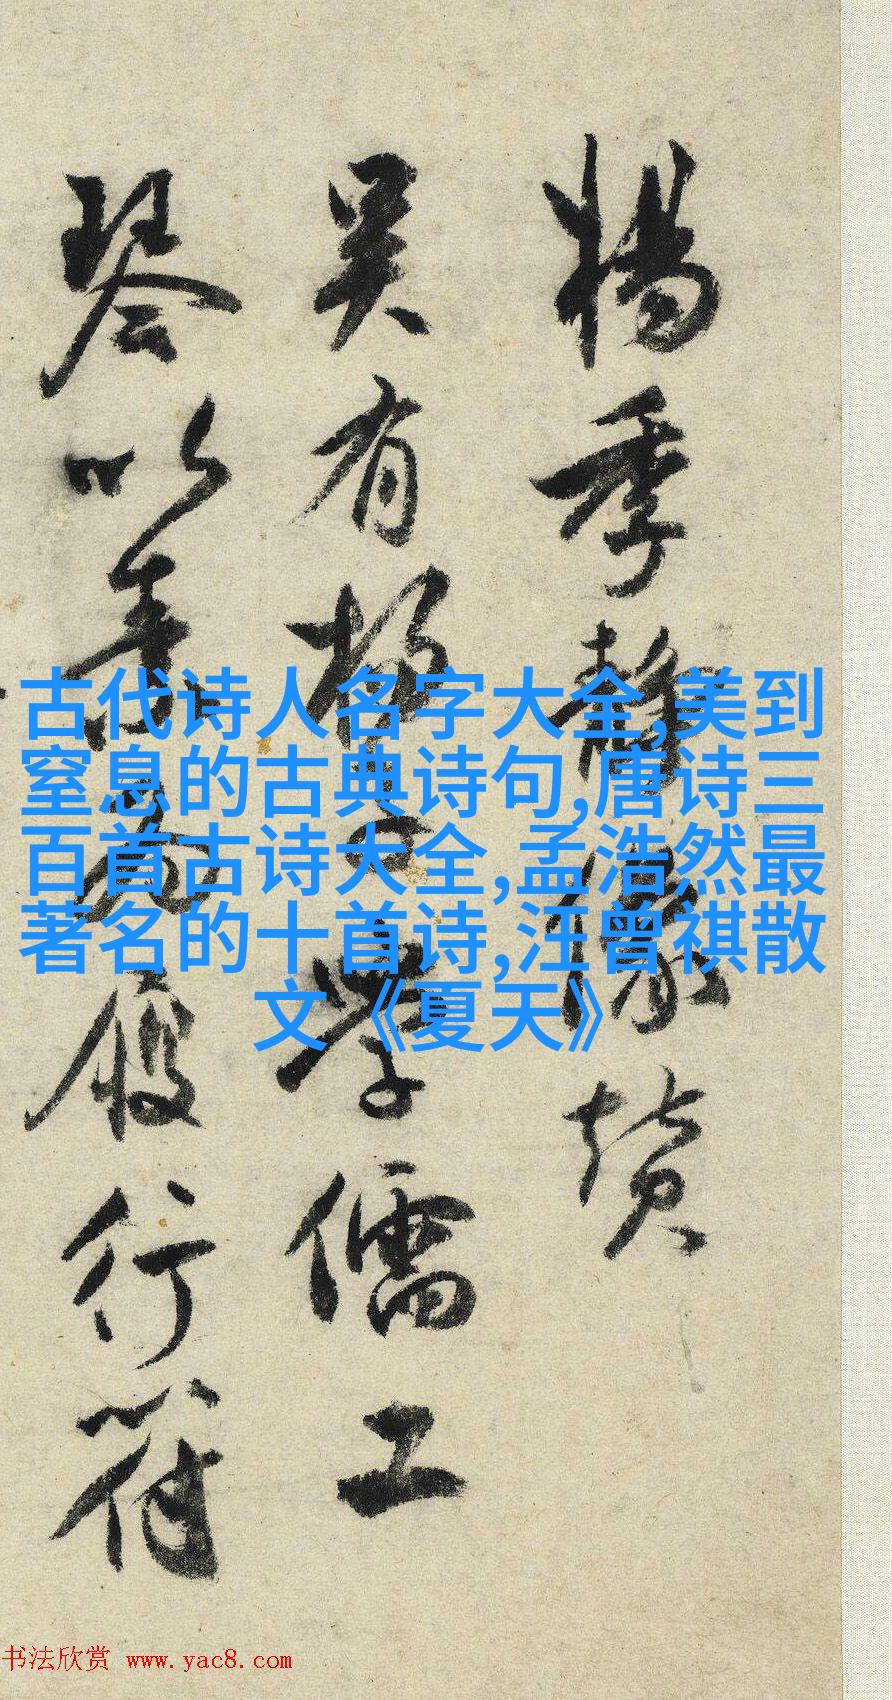 杨季静像赞
吴有杨子学儒工
琴以素为履行符
古代诗人名字大全,美到
窒息的古典诗句,唐诗三
百首古诗大全,孟浩然最
著名的十首诗,汪曾祺散
文《夏天》
书法欣赏 www.yac8.com